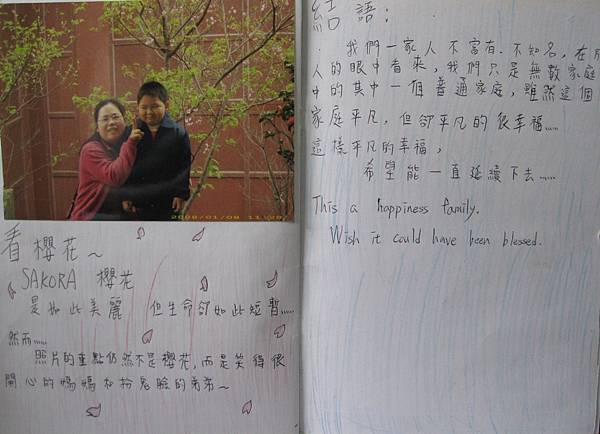 2009/01/08 11:28
看櫻花~
SAKORA 櫻花
是如此美麗 但生命卻如此短暫......
然而......
照片的重點仍然不是櫻花,而是笑得很
開心的媽媽和扮鬼臉的弟弟~
結語:
我們一家人不富有.不知名,在別
人的眼中看來,我們只是無數家庭
中的其中一個普通家庭,雖然這個
家庭平凡,但卻平凡的很幸福......
這樣平凡的幸福,
希望能一直延續下去......
This a happiness family.
Wish it could have been blessed.